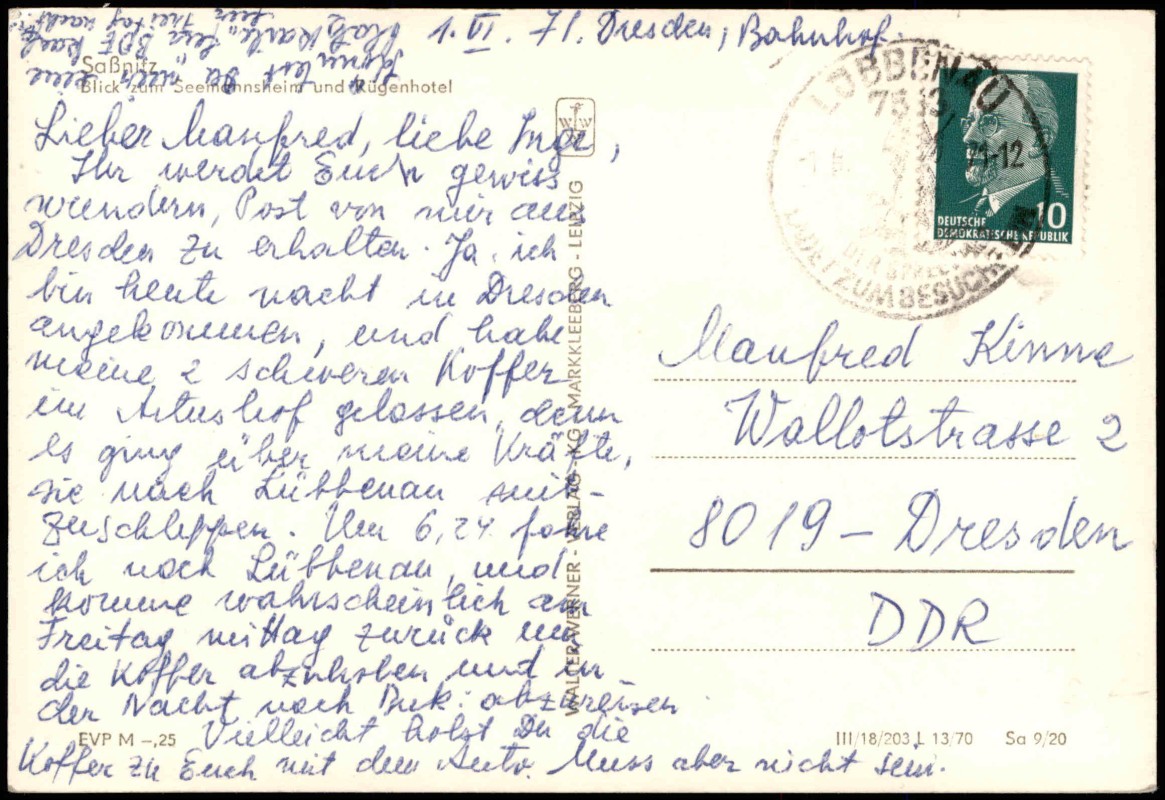 1. IV. 71. Dresden, Bahnhof.
Saßnitz
Blick zum Seemannsheim und Rügenhotel
Lieber Manfred, liebe Inge,
Ihr werdet Euch gewiss
wundern, Post von mir aus
Dresden zu erhalten. Ja, ich
bin heute nacht in Dresden
angekommen, und habe
meine 2 schweren Koffer
im Artushof gelassen, denn
es ging über meine Kräfte,
sie nach Lübbenau mit-
zuschleppen. Um 6,24 fahre
ich nach Lübbenau, und
komme wahrscheinlich am
Freitag mittag zurück um
die Koffer abzuholen und in
der Nacht nach Buk. abzureisen
Vielleicht holst Du die
Koffer zu Euch mit dem Auto. Muss aber nicht sein.
EVP M –,25
WALTER WERNER - VERLAG - KG - MARKKLEEBERG - LEIPZIG
W W
LÜBBENAU
7543
71-12
LADET ZUM BESUCH
DEUTSCHE
DEMOKRATISCHE REPUBLIK
10
Manfred Kinne
Wallotstrasse 2
8019 – Dresden
DDR
III/18/203 L 13/70 Sa 9/20